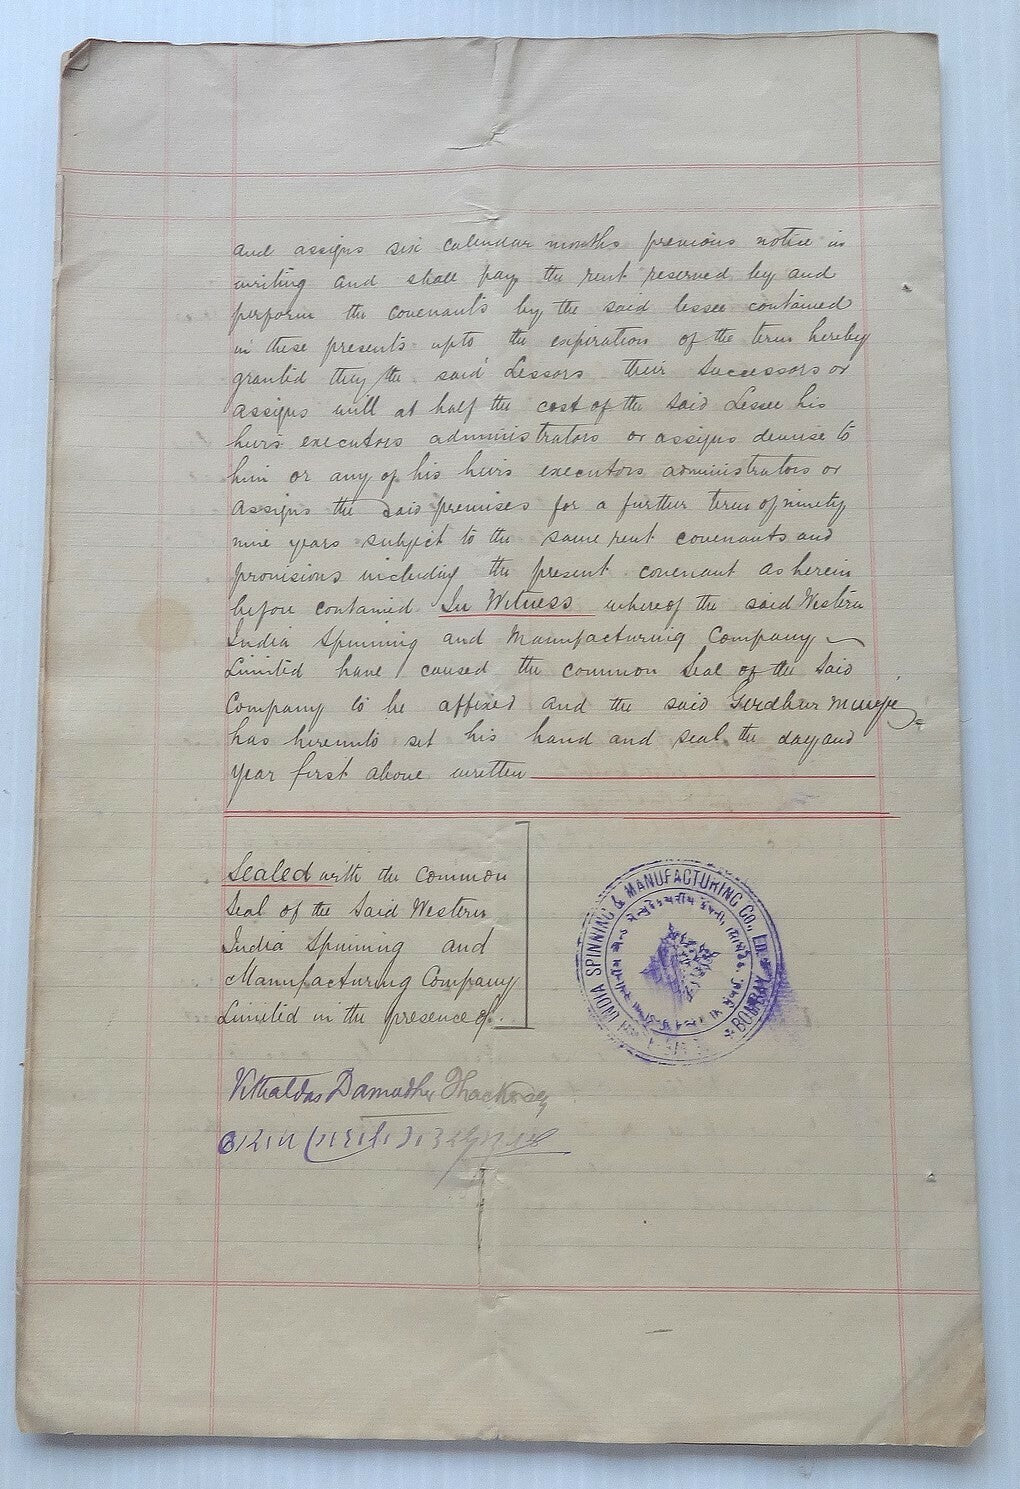 and assigns six calendar months previous notice in
writing and shall pay the rent reserved by and
perform the covenants by the said lessee contained
in these presents upto the expiration of the term hereby
granted they the said Lessors their Successors or
assigns will at half the cost of the said Lessee his
heirs executors administrators or assigns demise to
him or any of his heirs executors administrators or
assigns the said premises for a further term of ninety
nine years subject to the same rent covenants and
provisions including the present covenant as herein
before contained In Witness whereof the said Western
India Spinning and Manufacturing Company
Limited have caused the common Seal of the Said
Company to be affixed and the said Gordhur
has hereunto set his hand and seal the day and
year first above written
Sealed with the common
Seal of the Said Western
India Spinning and
Manufacturing Company
Limited in the presence of
INDIA SPINNING & MANUFACTURING CO., LD. BOMBAY
Vithaldas Damodher Thackersey